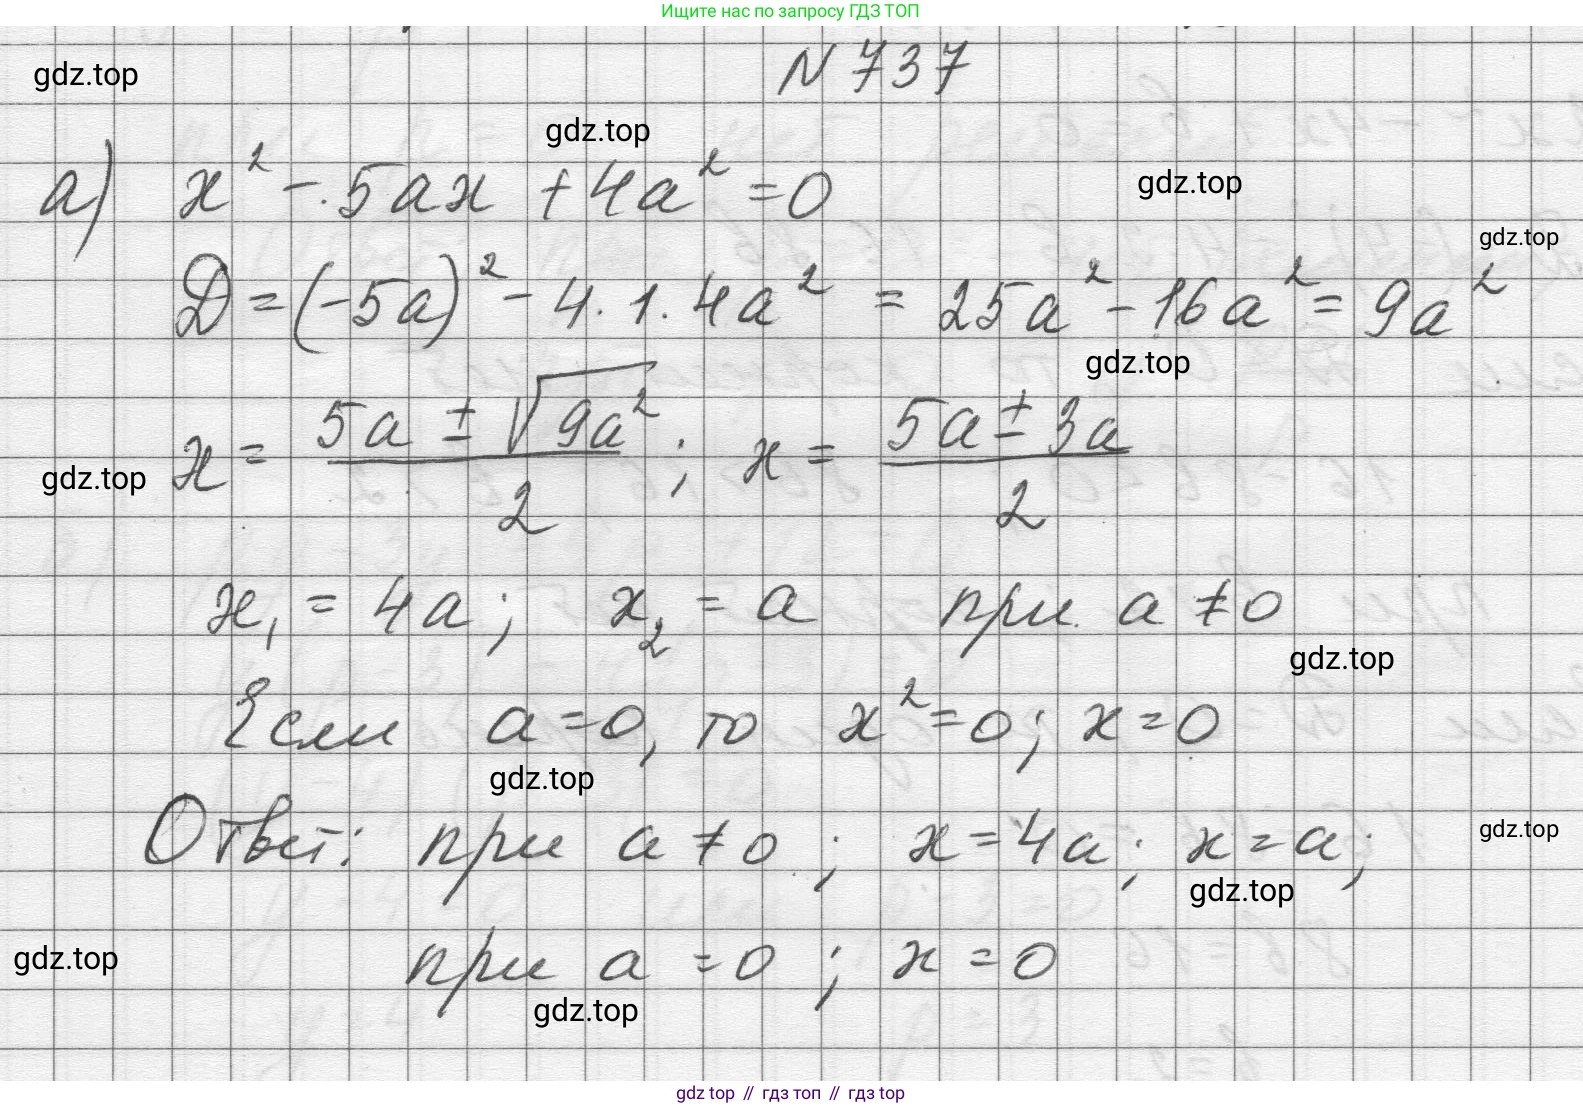 Ищите нас по запросу ГДЗ ТОП
N 737
gdz.top
gdz.top
а) x² - 5ax + 4a² = 0
gdz.top
gdz.top
Д = (-5a)² - 4·1·4a² = 25a² - 16a² = 9a²
gdz.top
x = (5a ± √9a²)/2 ; x = (5a ± 3a)/2
gdz.top
x₁ = 4a; x₂ = a при a ≠ 0
gdz.top
Если a = 0, то x² = 0; x = 0
gdz.top
Ответ: при a ≠ 0; x = 4a; x = a;
gdz.top
gdz.top
при a = 0; x = 0
gdz.top
gdz.top
gdz top // гдз топ // гдз top